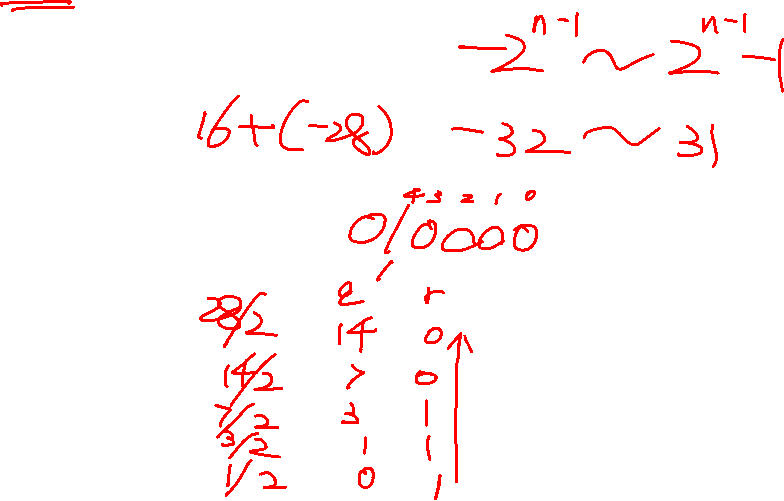 -2^{n-1} ~ 2^{n-1} -1
16+(-28) -32 ~ 31
4 3 2 1 0
010000
q r
28/2 14 0
14/2 7 0
7/2 3 1
3/2 1 1
1/2 0 1